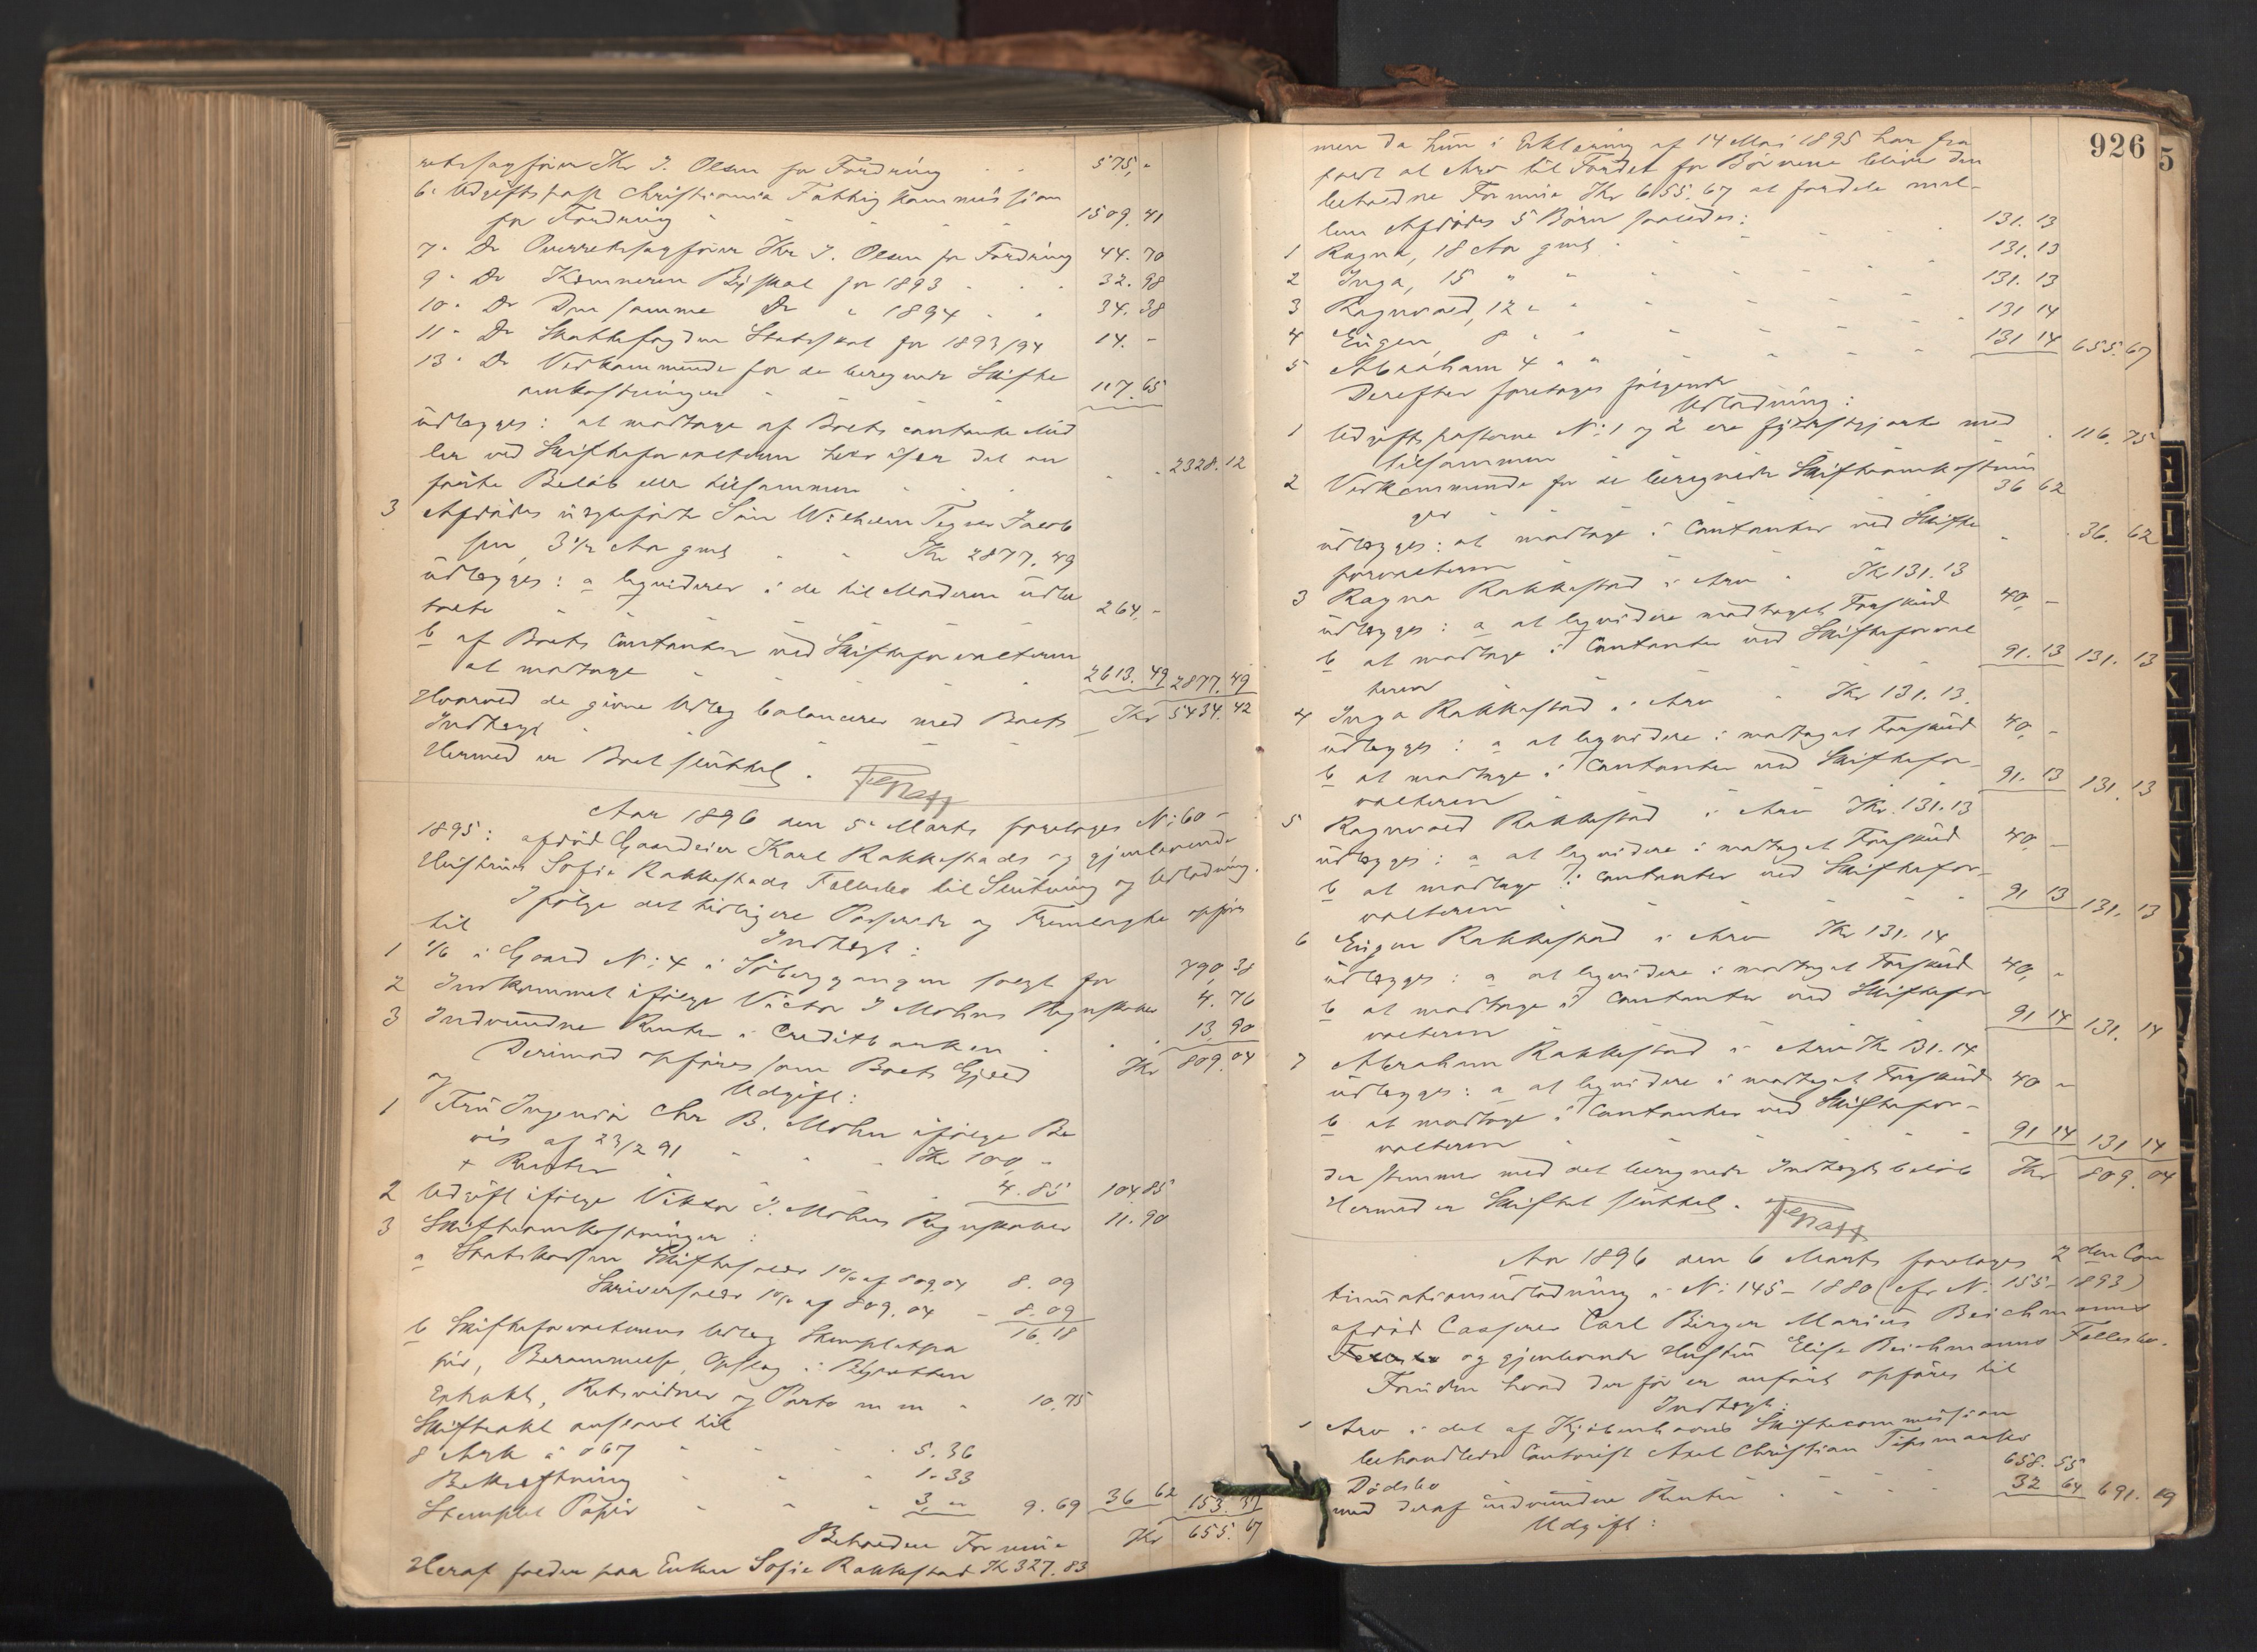 retssagfører Kr I. Olsen for Fordring 575,-
6. Udgiftspost Christiania Fattigkommission
for Fordring 1509.41
7. Do Overretssagfører Kr I. Olsen for Fordring 44.70
9. Do Kæmneren Byskat for 1893 32.98
10. Do Den samme Do " 1894 34.38
11. Do Skattefogden Statsskat for 1893/94 14.-
13. Do Vedkommende for de beregnede Skifte
omkostninger 117.65
udlægges: at modtage af Boets contante Mid
ler ved Skifteforvalteren hver især det an
førte Beløb eller tilsammen 2328.12
3 Afdødes Søn Wilhelm Tegner Jacob
sen, 3 1/2 Aar gml Kr 2877.49
udlægges: a liqviderer i de til Moderen udbe
talte 264,-
b af Boets Contanter ved Skifteforvalteren
at modtage 2613.49 2877.49
Hvorved de givne Udlæg balancerer med Boets
Indtægt Kr 5434.42
Hermed er Boet sluttet.
Aar 1896 den 5. Marts foretages N: 60 -
1895: afdød Gaardeier Karl Rakkestads og gjenlevende
Hustru Sofie Rakkestads Fællesbo til Slutning og Udlodning.
Ifølge det tidligere Passerede og Fremlagte opføres
til Indtægt:
1 1/6 i Gaard N: 4 i solgt for 790,38
2 Indkommet ifølge Victor I Mohns Regnskaber 4.76
3 Indvundne Renter i Creditbanken 13.90
Kr 809.04
Derimod opføres som Boets Gjæld
og Udgift:
1 Fru Ingeniør Chr B. Mohn ifølge Be
vis af 23/2 91 Kr 100,-
+ Renter 4.85 104.85
2 Udgift ifølge Viktor I. Mohns Regnskaber 11.90
3 Skifteomkostninger:
a Statskassen Skiftesalær 1% af 809.04 8.09
Skriversalær 1% af 809.04 - 8.09
16.18
b Skifteforvalterens Udlæg Stempletpa
pir, Berammelse, Opslag i Byretten
Extrakt, Retsvidner og Porto m m 10.75
Skifteakt anslaaet til
8 Ark à 067 5.36
Bekræftning 1.33
Stemplet Papir 3,- 9.69 36 62 153.37
Beholden Formue Kr 655.67
Heraf falder paa Enken Sofie Rakkestad Kr 327.83
926
5
men da hun i Erklæring af 14 Mai 1895 har fra
faldt al Arv til Fordel for Børnene bliver den
beholdne Formue Kr 655.67 at fordele mel-
lem Afdødes 5 Børn saaledes:
1 Ragna, 18 Aar gml 131.13
2 Inga, 15 " " 131.13
3 Ragnvald, 12 " " 131.13
4 Eugen, 8 " " 131 14
5 Abraham 4 " " 131 14 655.67
Derefter foretages følgende
Udlodning:
1 Udgiftsposterne N: 1 og 2 ere fyldestgjorte med
tilsammen 116.75
2 Vedkommende for de beregnede Skifteomkostnin
ger 36 62
udlægges: at modtage i Contanter ved Skifte
forvalteren 36.62
3 Ragna Rakkestad i Arv Kr 131.13
udlægges: a at liqvidere modtaget Forskud 40,-
b at modtage i Contanter ved Skifteforval
teren 91.13 131.13
4 Inga Rakkestad i Arv Kr 131.13.
udlægges: a at liqvidere i modtaget Forskud 40,-
b at modtage i Contanter ved Skiftefor-
valteren 91.13 131.13
5 Ragnvald Rakkestad i Arv Kr. 131.13
udlægges: a at liqvidere i modtaget Forskud 40,-
b at modtage i Contanter ved Skiftefor-
valteren 91 13 131.13
6 Eugen Rakkestad i Arv Kr 131.14
udlægges: a at liqvidere i modtaget Forskud 40,-
b at modtage i Contanter ved Skiftefor
valteren 91 14 131.14
7 Abraham Rakkestad i Arv Kr 131.14
udlægges: a at liqvidere i modtaget Forskud 40 -
b at modtage i Contanter ved Skiftefor-
valteren 91 14 131 14
der stemmer med det beregnede Indtægtsbeløb Kr 809.04
Hermed er Skiftet sluttet.
Aar 1896 den 6 Marts foretages 2den Con
tinuationsudlodning i N: 145 - 1880 (cfr N: 155 - 1893)
afdød Casserer Carl Birger Marius Beichmanns
og gjenlevende Hustru Elise Beichmanns Fællesbo.
Foruden hvad der før er anført opføres til
Indtægt:
1 Arv i det af Kjøbenhavns Skiftecommission
behandlede Cantorist Axel Christian
Dødsbo 658.55
med deraf indvundne Renter 32 64 691.19
Udgift:
G
H
I
J
K
L
M
N
O